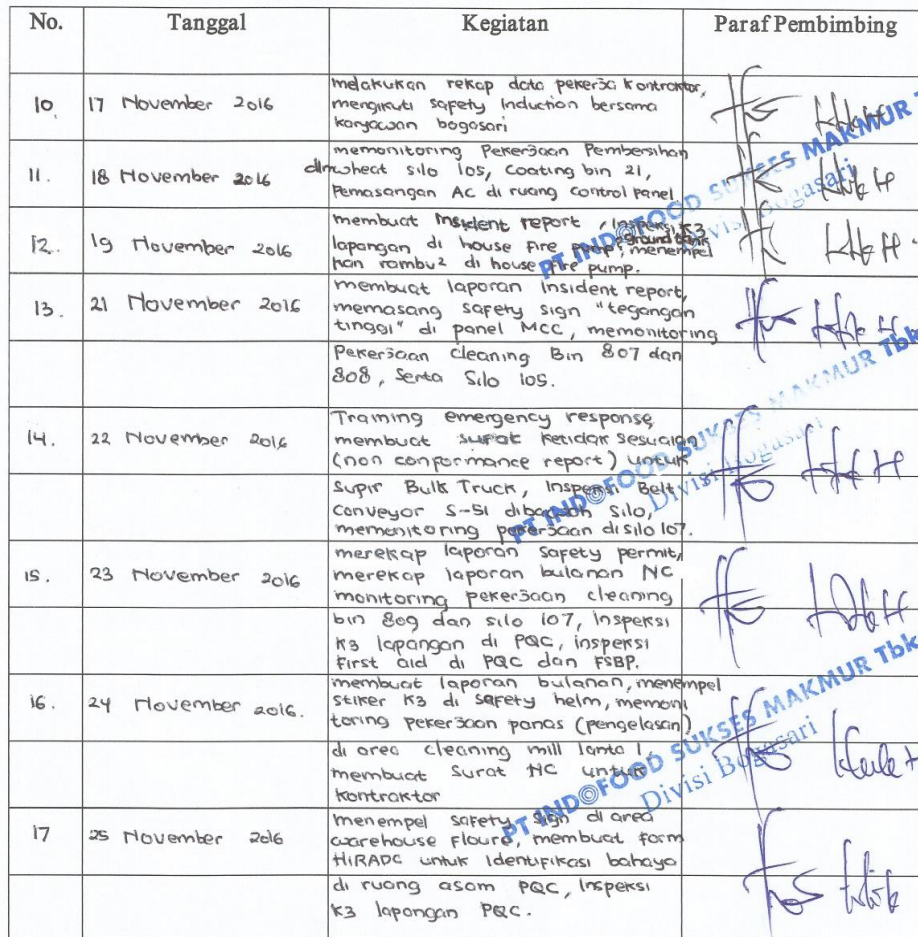 No. Tanggal Kegiatan Paraf Pembimbing
10. 17 November 2016 melakukan rekap data pekerja kontraktor,
mengikuti safety induction bersama
karyawan bogasari
11. 18 November 2016 memonitoring Pekerjaan Pembersihan
wheat silo 105, Coating bin 21,
Pemasangan AC di ruang control panel
12. 19 November 2016 membuat Insident report, Inspeksi K3
lapangan di house fire pump, ground tank menempel
kan rambu² di house fire pump.
13. 21 November 2016 membuat laporan Insident report,
memasang safety sign "tegangan
tinggi" di panel MCC, memonitoring
Pekerjaan cleaning Bin 807 dan
808, Serta Silo 105.
14. 22 November 2016 Training emergency response,
membuat surat ketidak sesuaian
(non conformance report) untuk
Supir Bulk Truck, Inspeksi Belt
Conveyor S-51 dibawah Silo,
memonitoring pekerjaan di silo 107.
15. 23 November 2016 merekap laporan safety permit,
merekap laporan bulanan NC
monitoring pekerjaan cleaning
bin 809 dan silo 107, Inspeksi
K3 lapangan di PQC, inspeksi
First aid di PQC dan FSBP.
16. 24 November 2016. membuat laporan bulanan, menempel
stiker K3 di safety helm, memoni
toring pekerjaan panas (pengelasan)
di area cleaning mill lantai 1,
membuat Surat NC untuk
kontraktor
17 25 November 2016 menempel safety sign di area
warehouse floure, membuat form
HIRADC untuk Identifikasi bahaya
di ruang asam PQC, Inspeksi
K3 lapangan PQC.
PT INDOFOOD SUKSES MAKMUR Tbk
Divisi Bogasari
PT INDOFOOD SUKSES MAKMUR Tbk
Divisi Bogasari
PT INDOFOOD SUKSES MAKMUR Tbk
Divisi Bogasari